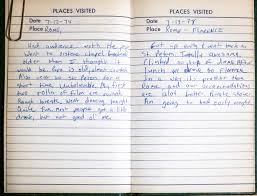 PLACES VISITED
Date 7-12-78
Place Rome,
Had audience with the
Went to Sistine Chapel
older than I thought it
would be. Pope is
Also went to St Peters for a
short time. Unbelievable. My first
two rolls of film are ruined.
Rough breaks. Went dancing tonight.
Quite fun. Most people get a little
drunk, but not good ol me.
PLACES VISITED
Date 7-13-78
Place Rome - Florence
Got up early & went back to
St Peters. Totally awesome.
I climbed to top of dome. After
lunch we drove to Florence.
In a way it's prettier than
Rome and our accommodations
are a lot better
I'm going to bed early tonight.